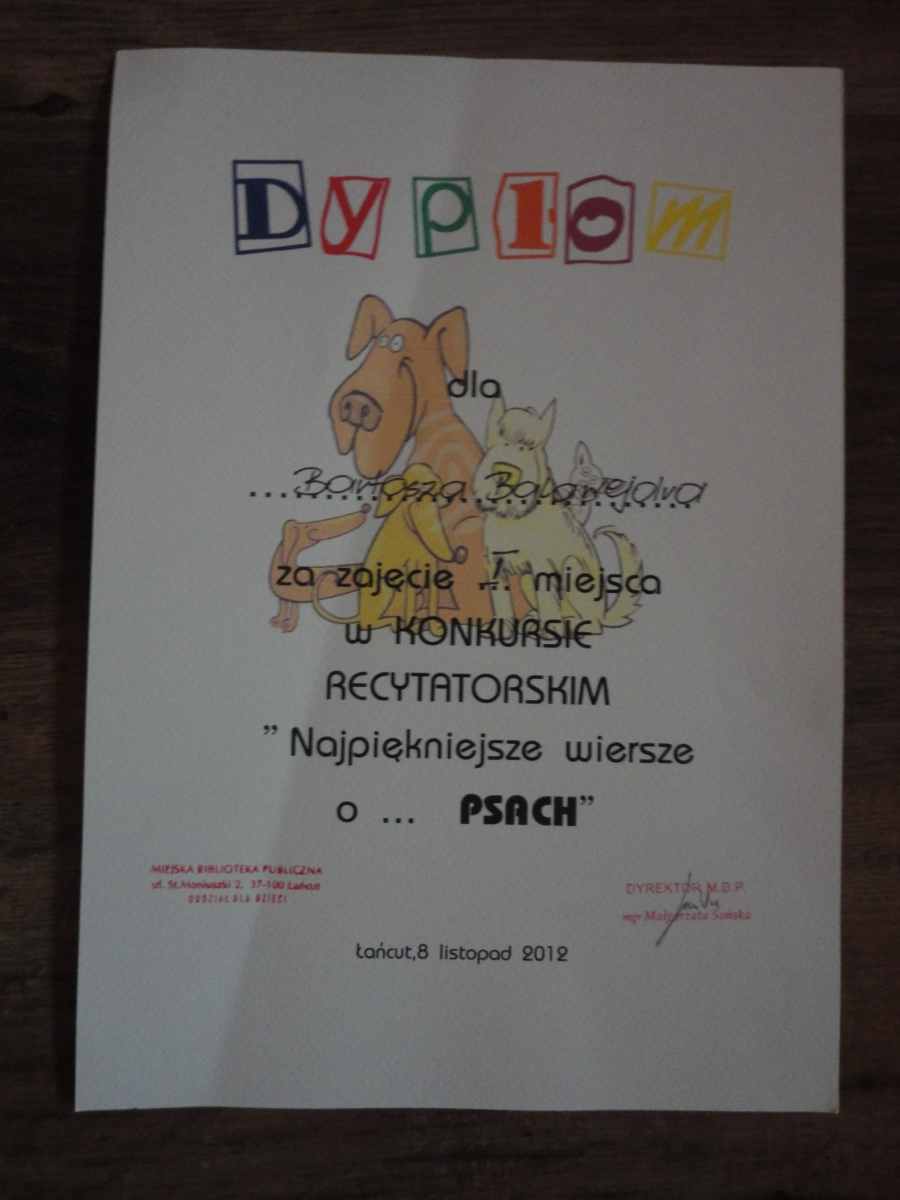 Dyplom
dla
Bartosza Balawejdra
za zajęcie I miejsca
w KONKURSIE
RECYTATORSKIM
" Najpiękniejsze wiersze
o ... PSACH"
MIEJSKA BIBLIOTEKA PUBLICZNA
ul. St. Moniuszki 2, 37-100 Łańcut
ODDZIAŁ DLA DZIECI
DYREKTOR M.B.P.
mgr Małgorzata
Łańcut,8 listopad 2012